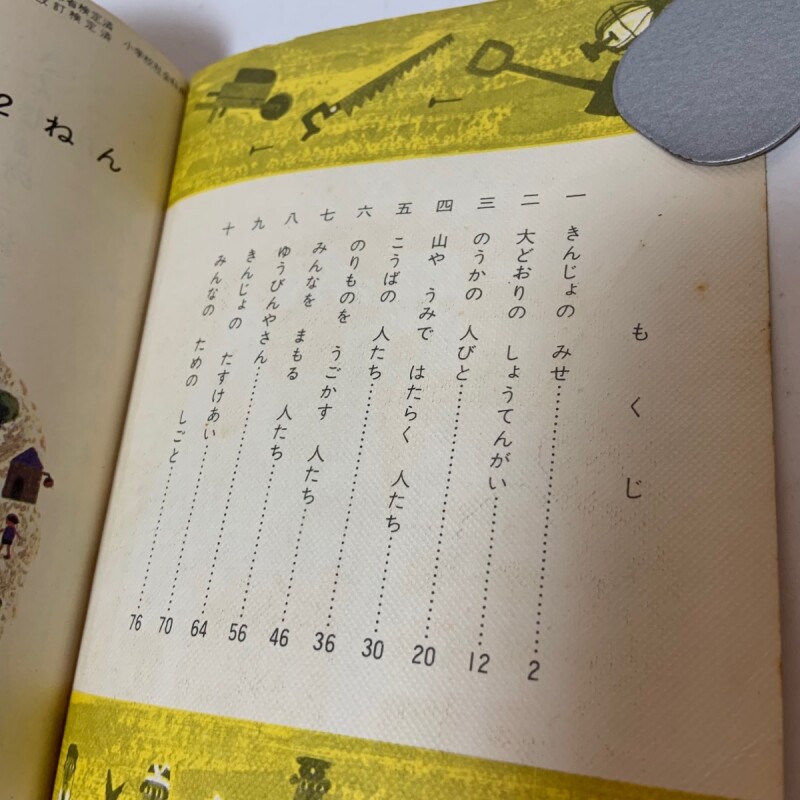 もくじ
一 きんじょの みせ 2
二 大どおりの しょうてんがい 12
三 のうかの 人びと 20
四 山や うみで はたらく 人たち 30
五 こうばの 人たち 36
六 のりものを うごかす 人たち 46
七 みんなを まもる 人たち 56
八 ゆうびんやさん 64
九 きんじょの たすけあい 70
十 みんなの ための しごと 76
2ねん
改訂検定済 小学校社会科